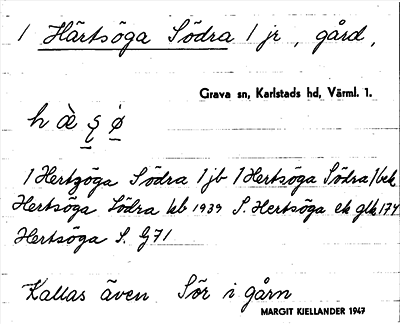 1 Härtsöga Södra 1 jr , gård ,
Grava sn, Karlstads hd, Värml. 1.
1 Hertzöga Södra 1 jb 1 Hertsöga Södra 1 bek
Hertsöga Södra kb 1939 S. Hertsöga ek glk 174
Hertsöga S. G71
Kallas även Sör i gårn
MARGIT KJELLANDER 1947